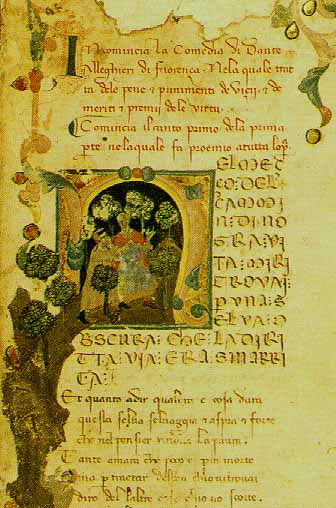 Nomincia la Comedia di Dante
Alleghieri di Fiorença. Nela quale trat
ta dele pene et punimenti de vicij et de
meriti et premij dele virtu.
Comincia il canto primo dela prima
parte nela quale fa proemio a tutta lop̃
EL MEÇ
ÇO: DEL
CAMMI
N: DI NO
STRA: VI
TA: MI RI
TROVAI
P UNA S
ELVA: O
BSCURA: CHE LA DIRI
TTA: VIA: ERA SMARRI
TA:
Et quanto a dir quale era e cosa dura
questa selva selvaggia et aspra et forte
che nel pensier rinova la paura.
Tante amara che poco e piu morte
ma per tractar del ben chio vi trovai
diro del laltre cose